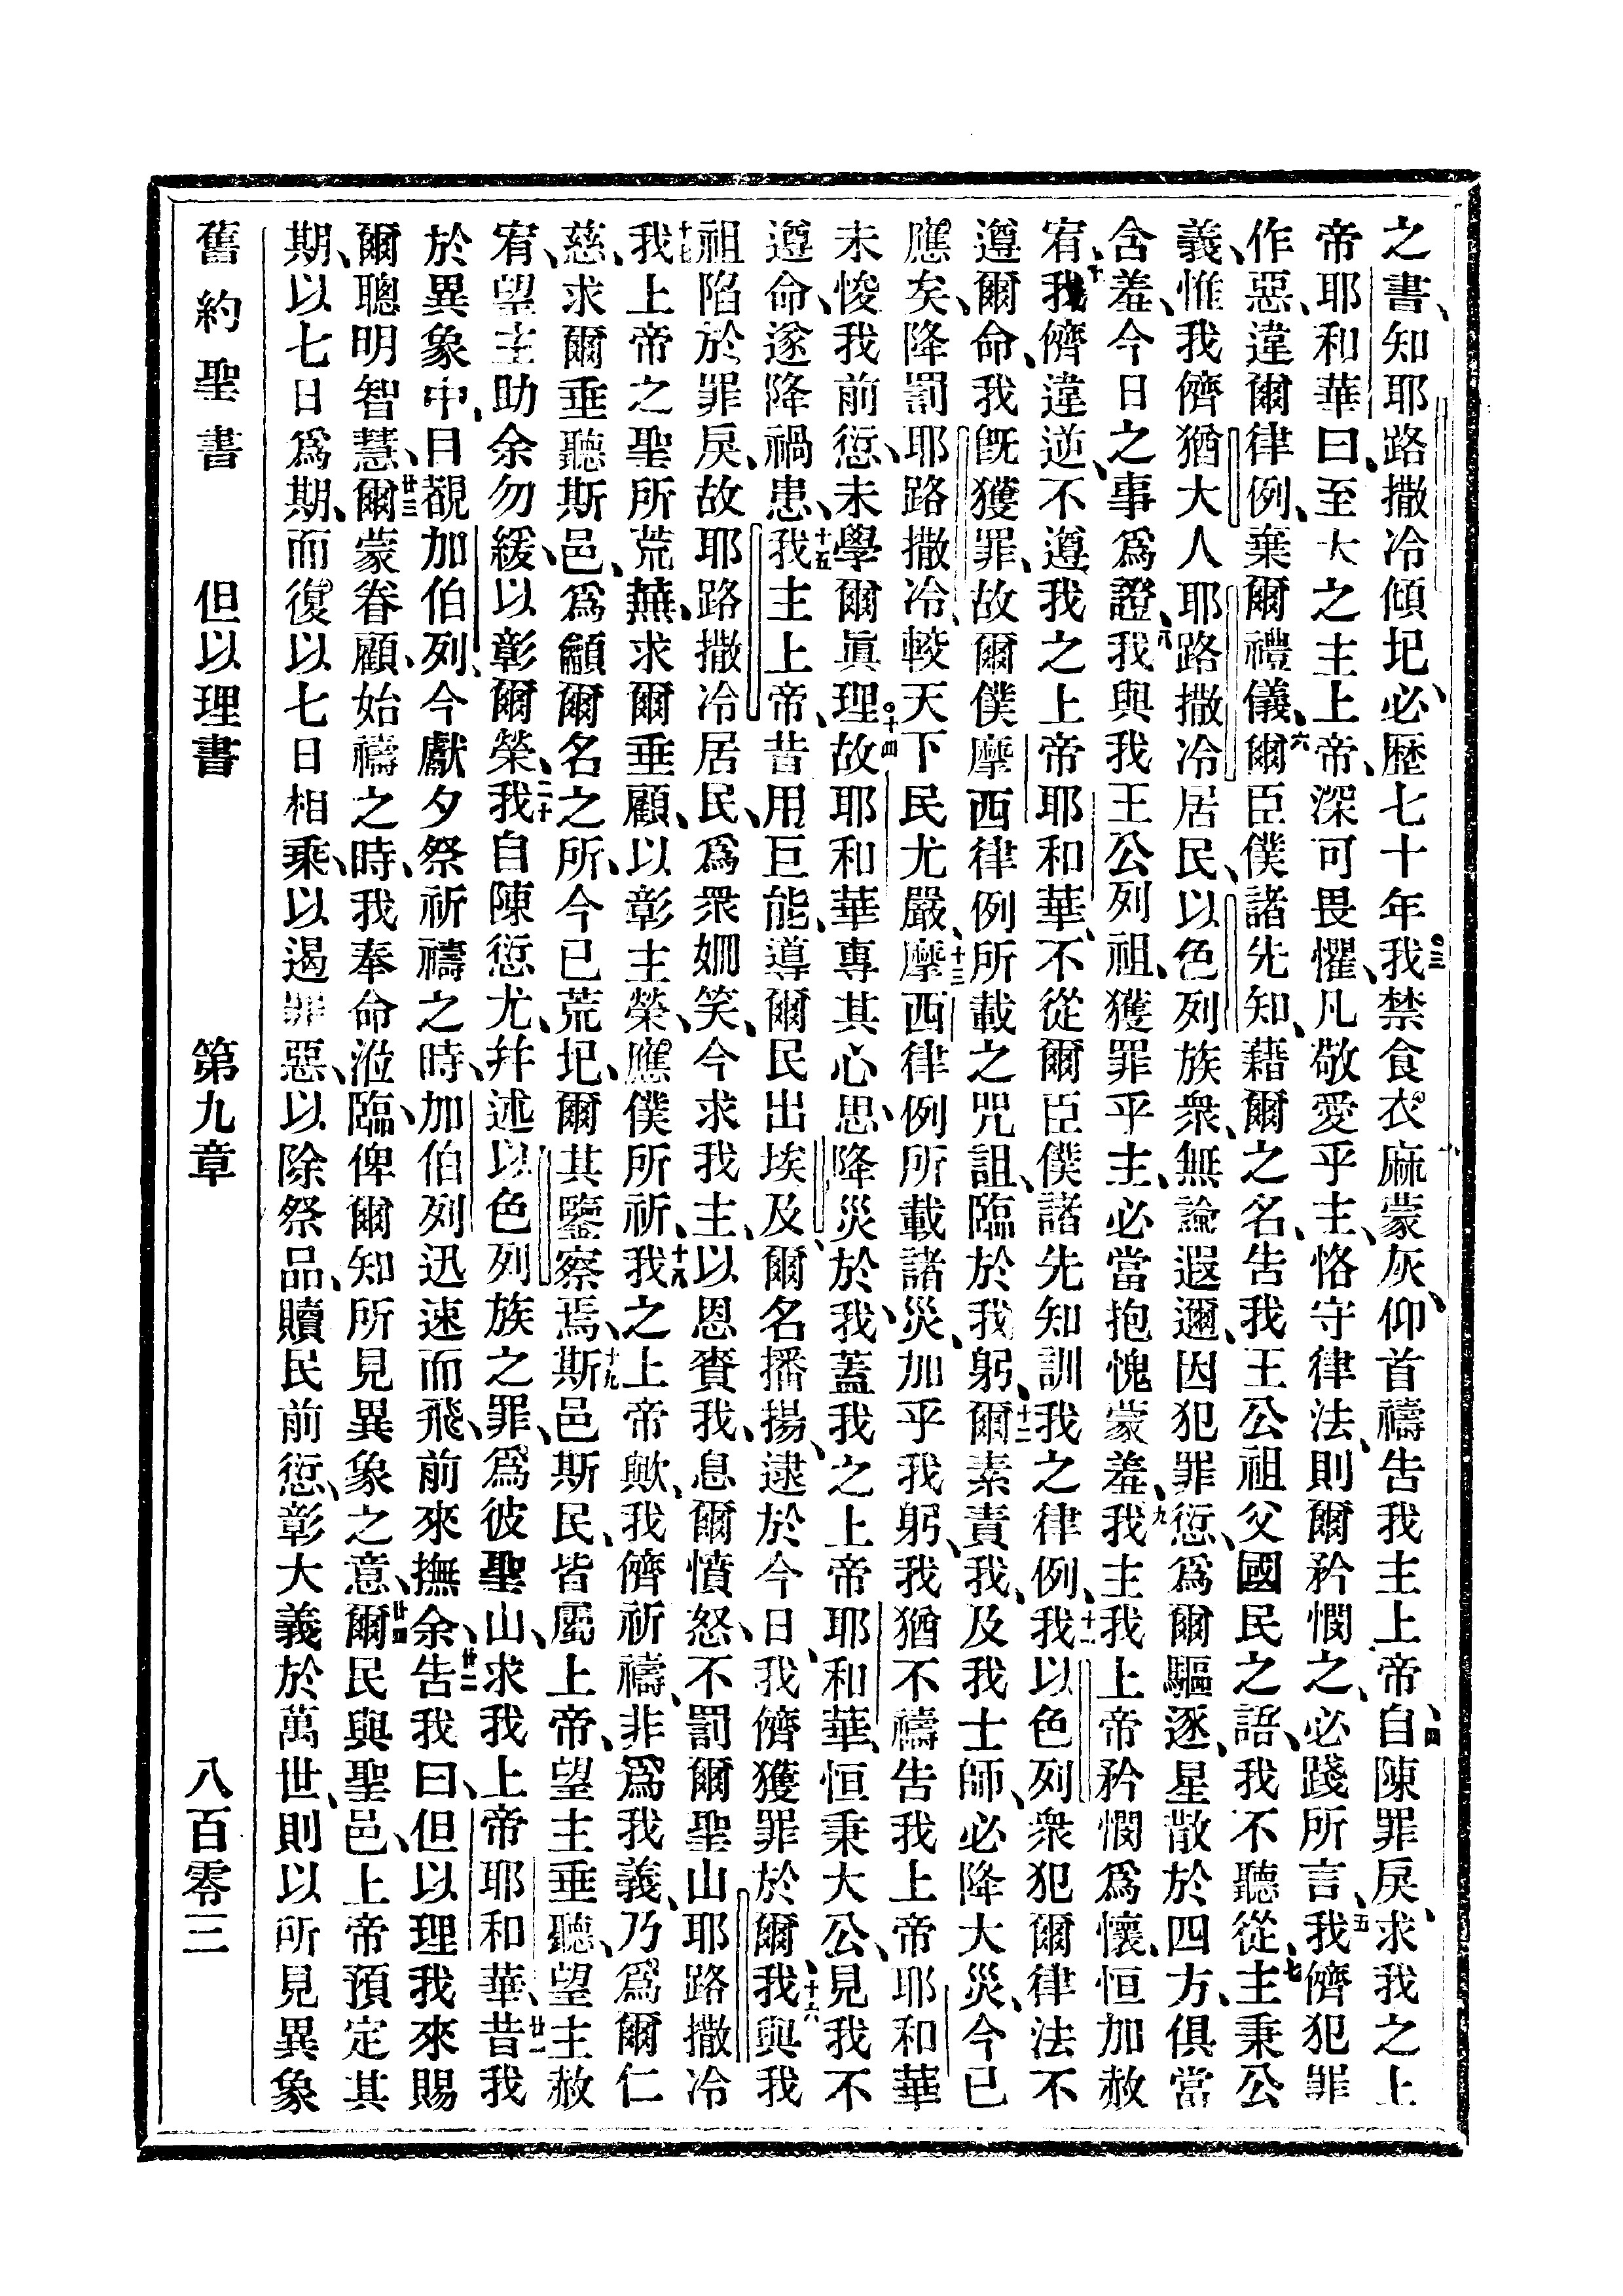 之書、知耶路撒冷傾圮、必歷七十年。三我禁食衣麻蒙灰、仰首禱告我主上帝、四自陳罪戾、求我之上
帝耶和華曰、至大之主上帝、深可畏懼、凡敬愛乎主、恪守律法、則爾矜憫之、必踐所言、五我儕犯罪
作惡、違爾律例、棄爾禮儀、六爾臣僕諸先知、藉爾之名、告我王公祖父國民之語、我不聽從、七主秉公
義、惟我儕猶大人耶路撒冷居民、以色列族衆、無論遐邇、因犯罪愆、爲爾驅逐、星散於四方、俱當
含羞、今日之事爲證、八我與我王公列祖、獲罪乎主、必當抱愧蒙羞、九我主我上帝矜憫爲懷、恒加赦
宥、十我儕違逆、不遵我之上帝耶和華、不從爾臣僕諸先知訓我之律例、十一我以色列衆犯爾律法不
遵爾命、我旣獲罪、故爾僕摩西律例所載之咒詛、臨於我躬、十二爾素責我、及我士師、必降大災、今已
應矣、降罰耶路撒冷、較天下民尤嚴、十三摩西律例所載諸災、加乎我躬、我猶不禱告我上帝耶和華
未悛我前愆、未學爾眞理。十四故耶和華專其心思、降災於我、蓋我之上帝耶和華、恒秉大公、見我不
遵命、遂降禍患、十五我主上帝、昔用巨能、導爾民出埃及、爾名播揚、逮於今日、我儕獲罪於爾、十六我與我
祖陷於罪戾、故耶路撒冷居民、爲衆姍笑、今求我主、以恩賚我、息爾憤怒、不罰爾聖山耶路撒冷
十七我上帝之聖所荒蕪、求爾垂顧、以彰主榮、應僕所祈、十八我之上帝歟、我儕祈禱、非爲我義、乃爲爾仁
慈、求爾垂聽斯邑、爲籲爾名之所、今已荒圮、爾其鑒察焉、十九斯邑斯民、皆屬上帝、望主垂聽、望主赦
宥、望主助余勿緩、以彰爾榮、二十我自陳愆尤、幷述以色列族之罪、爲彼聖山、求我上帝耶和華、廿一昔我
於異象中、目覩加伯列、今獻夕祭祈禱之時、加伯列迅速而飛、前來撫余、廿二告我曰、但以理我來賜
爾聰明智慧、廿三爾蒙眷顧、始禱之時、我奉命涖臨、俾爾知所見異象之意、廿四爾民與聖邑、上帝預定其
期、以七日爲期、而復以七日相乘、以遏罪惡、以除祭品、贖民前愆、彰大義於萬世、則以所見異象
舊約聖書　但以理書　第九章　八百零三